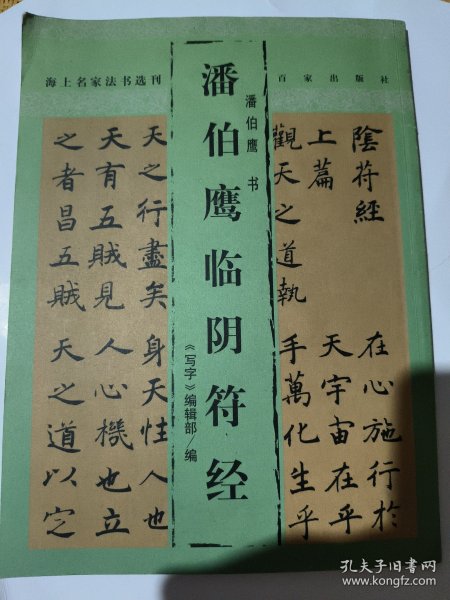 海上名家法书选刊
百家出版社
潘伯鹰临阴符经
潘伯鹰 书
《写字》编辑部/编
陰符經
上篇
觀天之道執
天之行盡矣
天有五賊見
之者昌五賊
在心施行於
天宇宙在乎
手萬化生乎
身天性人也
人心機也立
天之道以定
孔夫子旧书网
www.kongfz.com